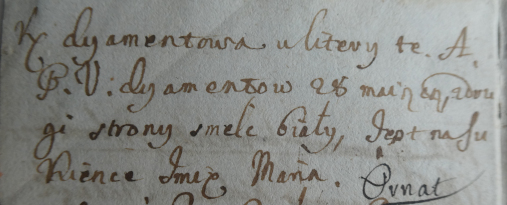 K dyamentowa u litery te. A.
P. V: dyamentow 28 maią cą, zdru
gi strony smelc biały, Jest na su
kience Jmię Marÿa. Ornat